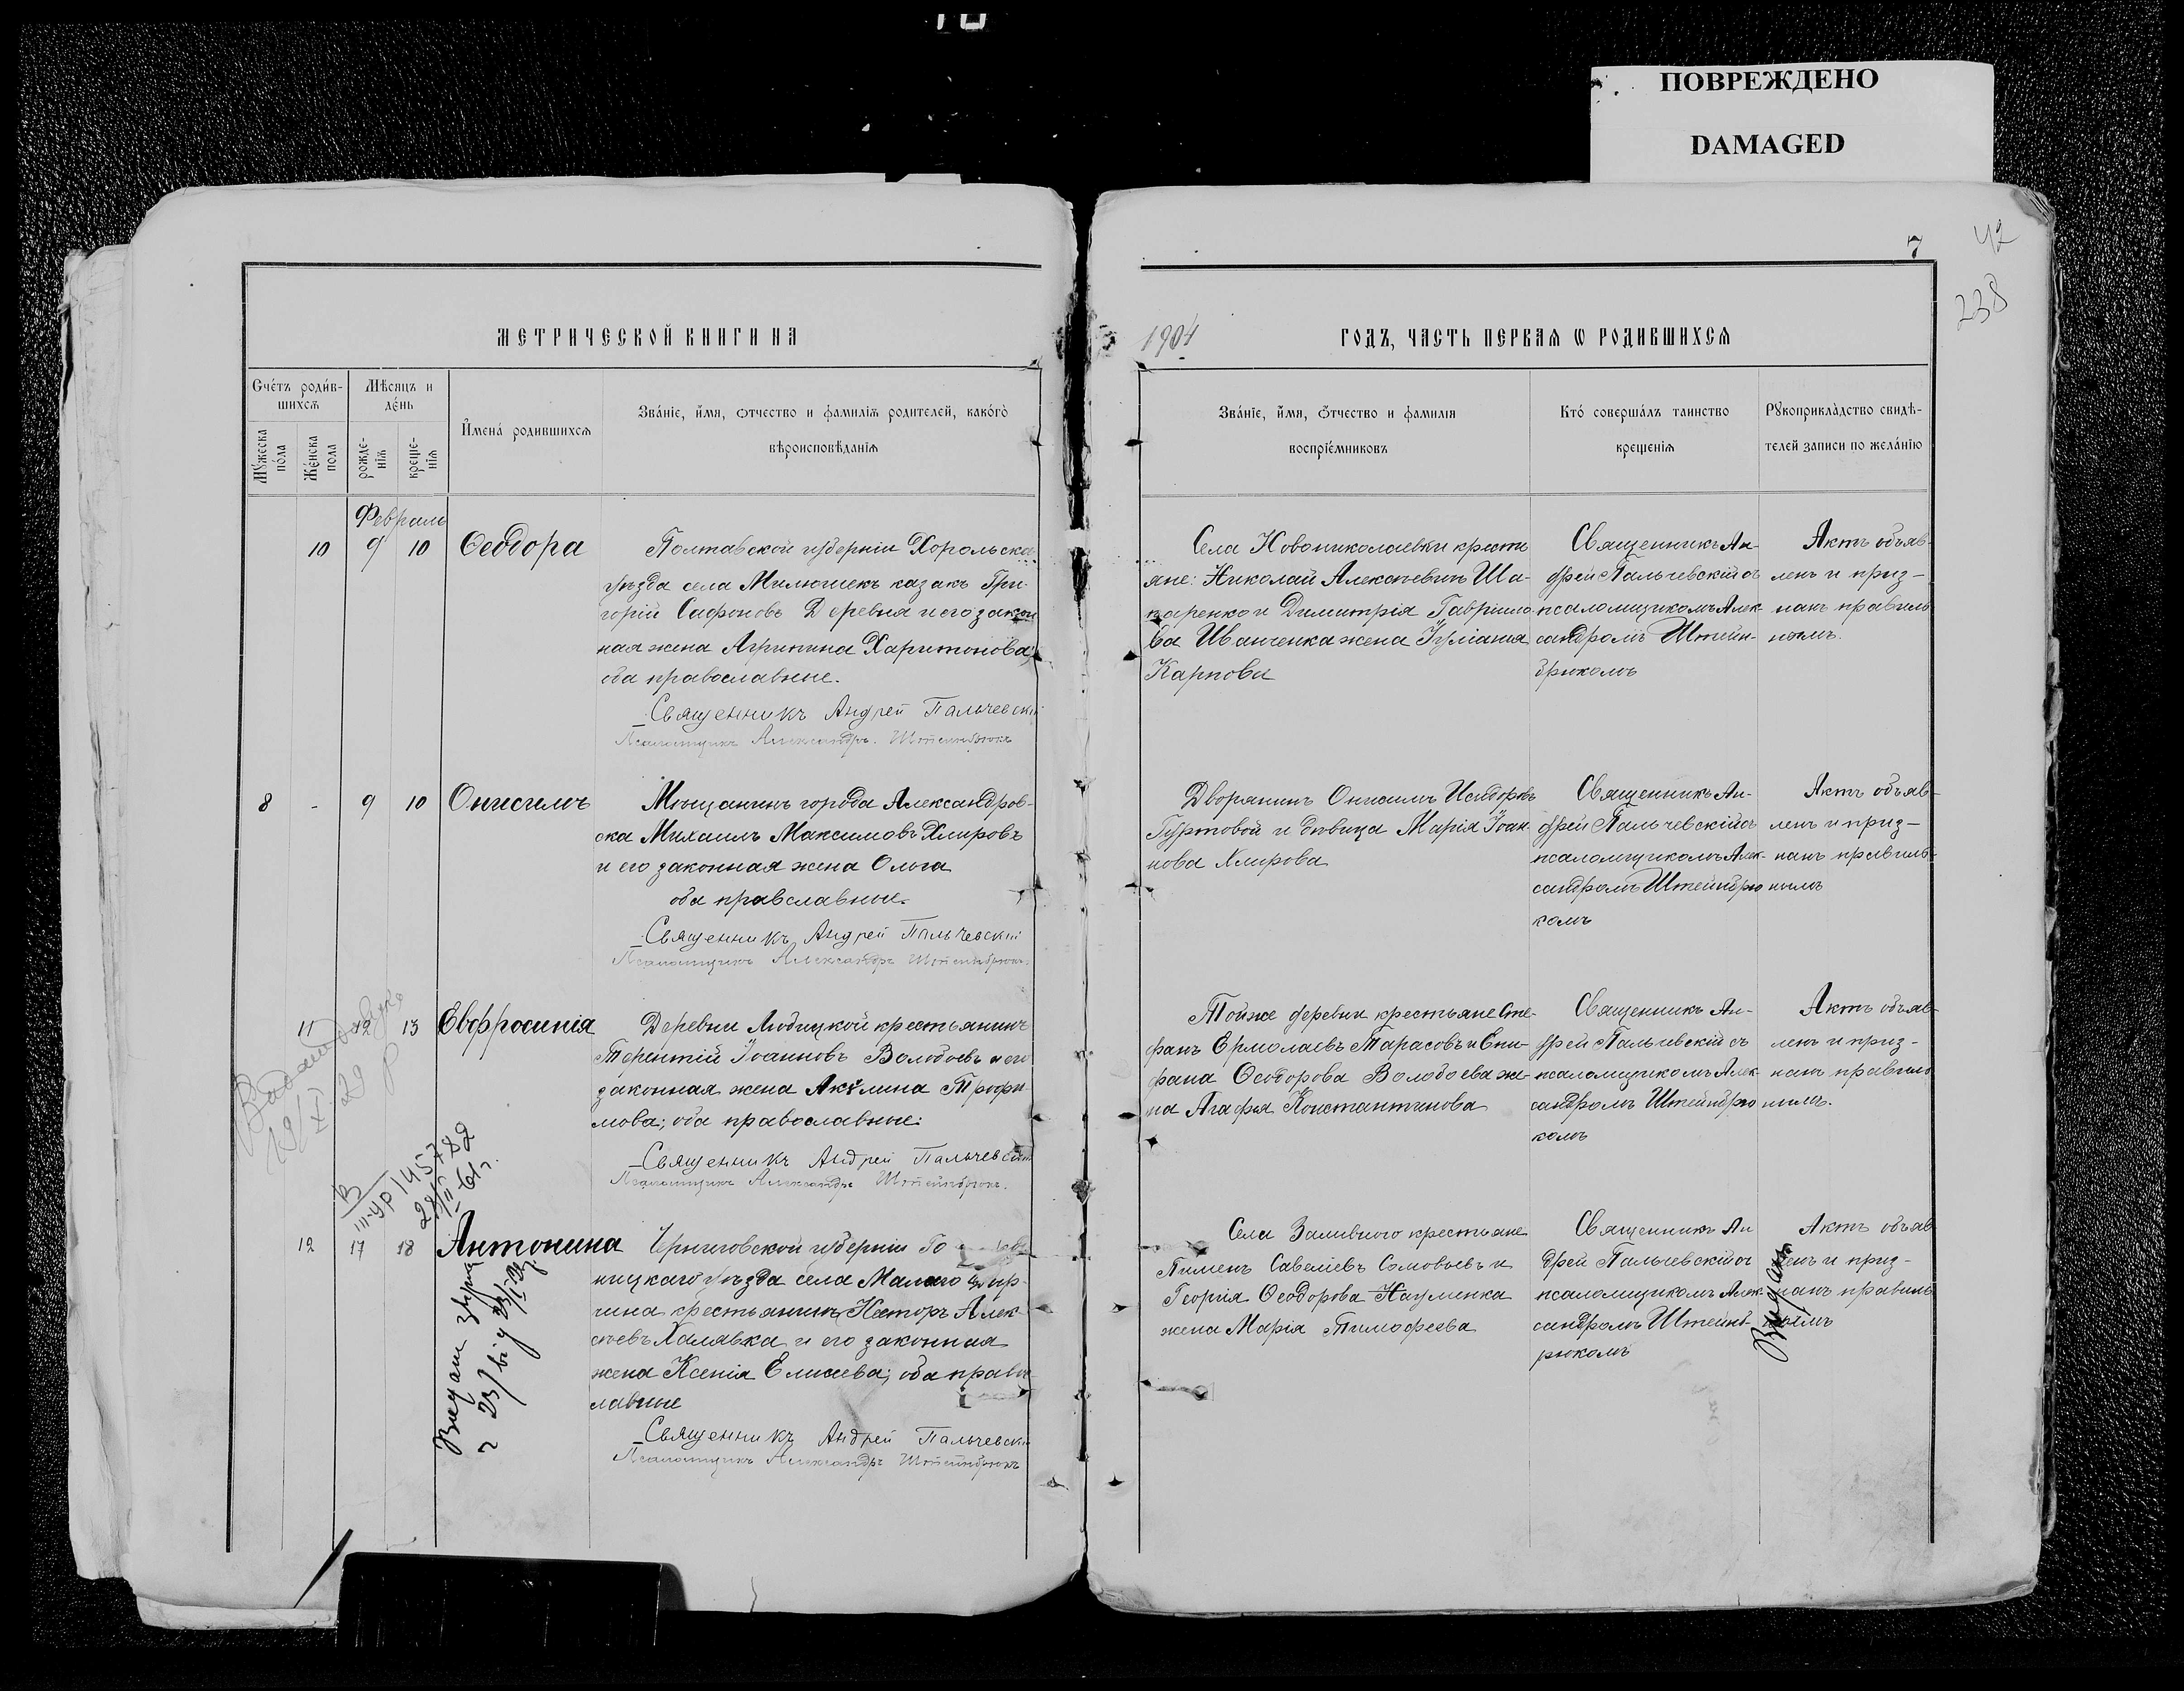 ПОВРЕЖДЕНО
DAMAGED
7
42
238
МЕТРИЧЕСКОЙ КНИГИ НА
1904
ГОДЪ, ЧАСТЬ ПЕРВАѦ Ѡ РОДИВШИХСѦ
Счéтъ роди́в-
шихсѧ
Мѣ́сяцъ и
дéнь
Му́жеска
по́ла
Же́нска
пола
рожде-
нїѧ
креще-
нїѧ
И҆мена́ родившихсѧ
Зва́нїе, и҆́мя, ѻ҆́тчество и фамилїѧ родителей, како́гѡ
вѣроисповѣ́данїѧ
Зва́нїе, и҆́мя, ѻ҆́тчество и фамилїя
воспрїе́мниковъ
Кто́ соверша́лъ таинство
крещенїѧ
Рꙋкоприкла̀дство свидѣ́-
телей записи по жела́нїю
Февраль
10 9 10 Ѳеодора
Полтавской губерніи Хорольска
уѣзда села Милюшекъ казакъ Гри-
горій Сафоновъ Деревня и его закон
ная жена Агрипина Харитонова;
оба православные.
Священникъ Андрей Пальчевскій
Псаломщикъ Александръ Штейнбрюкъ
Села Новониколаевки крести
яне: Николай Алексѣевичъ Ша-
паренко и Димитрія Гавріило
ва Иванченка жена Іуліанія
Карпова
Священникъ Ан-
дрей Пальчевскій съ
псаломщикомъ Алек
сандромъ Штейн-
брюкомъ
Актъ объяв-
ленъ и приз-
нанъ правиль
нымъ.
8 - 9 10 Онисимъ
Мѣщанинъ города Александров-
ска Михаилъ Максимовъ Хмировъ
и его законная жена Ольга
оба православные.
Священникъ Андрей Пальчевскій
Псаломщикъ Александръ Штейнбрюкъ.
Дворянинъ Онисимъ Исидоровъ
Гуртовой и дѣвица Марія Іоан-
нова Хмирова
Священникъ Ан-
дрей Пальчевскій съ
псаломщикомъ Алек-
сандромъ Штейнбрю
комъ
Актъ объяв-
ленъ и приз-
нанъ правиль-
нымъ
11 12 13 Евфросинія
Деревни Любицкой крестьянинъ
Терентій Іоанновъ Волобоевъ и его
законная жена Акѵлина Трофи
мова; оба православные.
Священникъ Андрей Пальчевскій
Псаломщикъ Александръ Штейнбрюкъ.
Тойже деревни крестьяне Сте-
фанъ Ермолаевъ Тарасовъ и Епи-
фана Ѳеодорова Волобоева же-
на Агафья Константинова
Священникъ Ан-
дрей Пальчевскій съ
псаломщикомъ Алек
сандромъ Штейнбрю
комъ
Актъ объяв-
ленъ и приз-
нанъ правиль
нымъ.
19/XI 29 р
В
III-УР 145782
12 17 18 Антонина
Черниговской губерніи Го
ницкаго уѣзда села Малаго
крестьянинъ Несторъ Алек-
сѣевъ Халявка и его законная
жена Ксенія Елисеева; оба право
лавные
Священникъ Андрей Пальчевскій
Псаломщикъ Александръ Штейнбрюкъ
Села Заливного крестьяне
Пименъ Савеліевъ Соловьевъ и
Георгія Ѳеодорова Науменка
жена Марія Тимофеева
Священникъ Ан
дрей Пальчевскій съ
псаломщикомъ Алек
сандромъ Штейнб-
рюкомъ
Актъ объяв
ленъ и приз-
нанъ правиль
нымъ